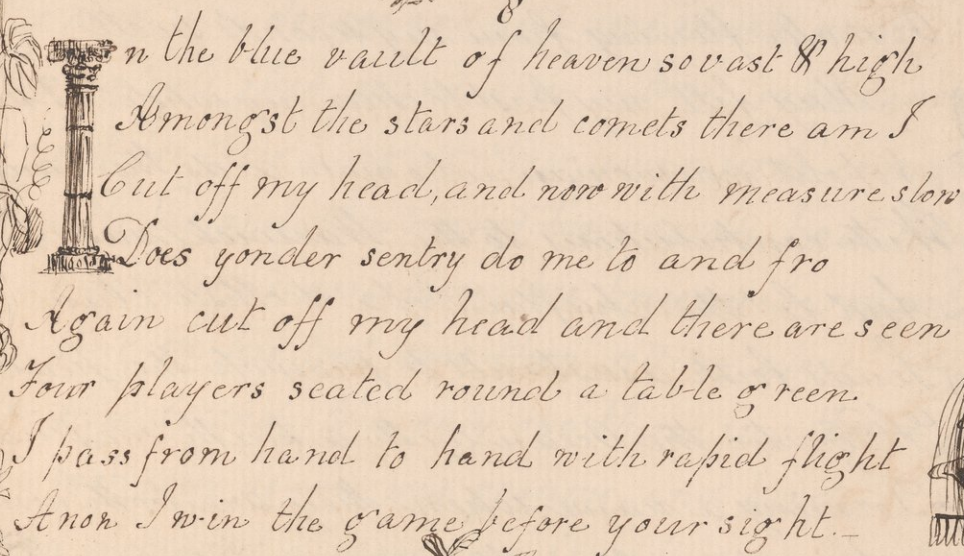 In the blue vault of heaven so vast & high
Amongst the stars and comets there am I
Cut off my head, and now with measure slow
Does yonder sentry do me to and fro
Again cut off my head and there are seen
Four players seated round a table green.
I pass from hand to hand with rapid flight
Anon I win the game before your sight._